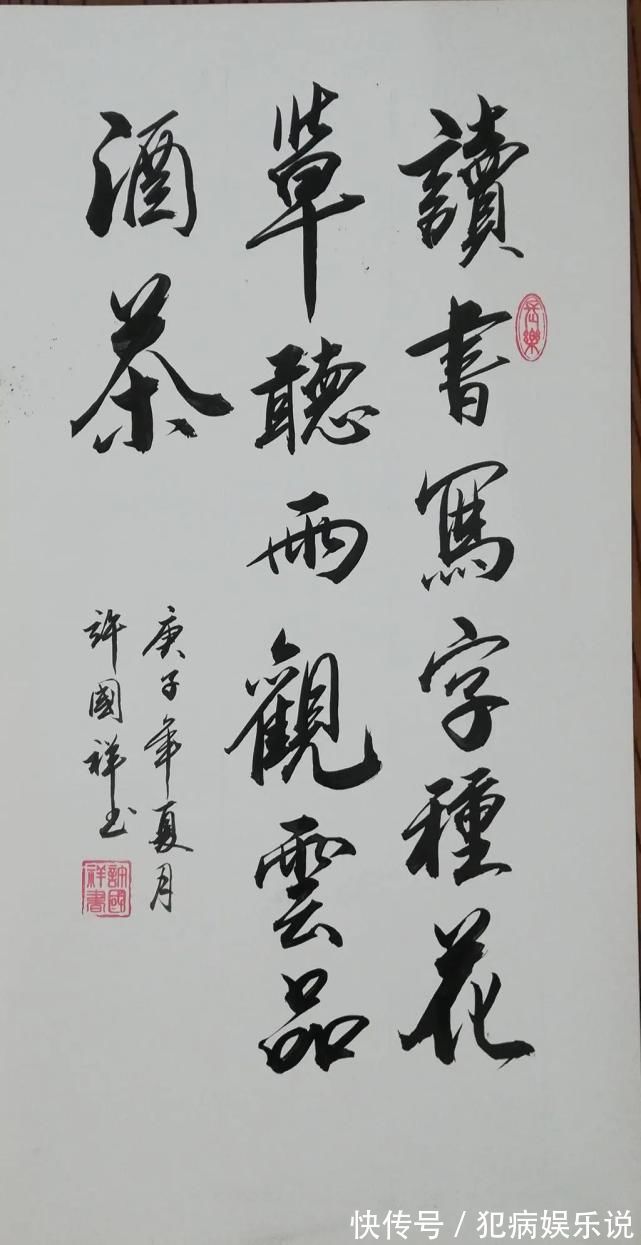 讀書寫字種花
草聽雨觀雲品
酒茶
庚子年夏月
許國祥书
長樂
許國祥書
快传号／犯病娱乐说